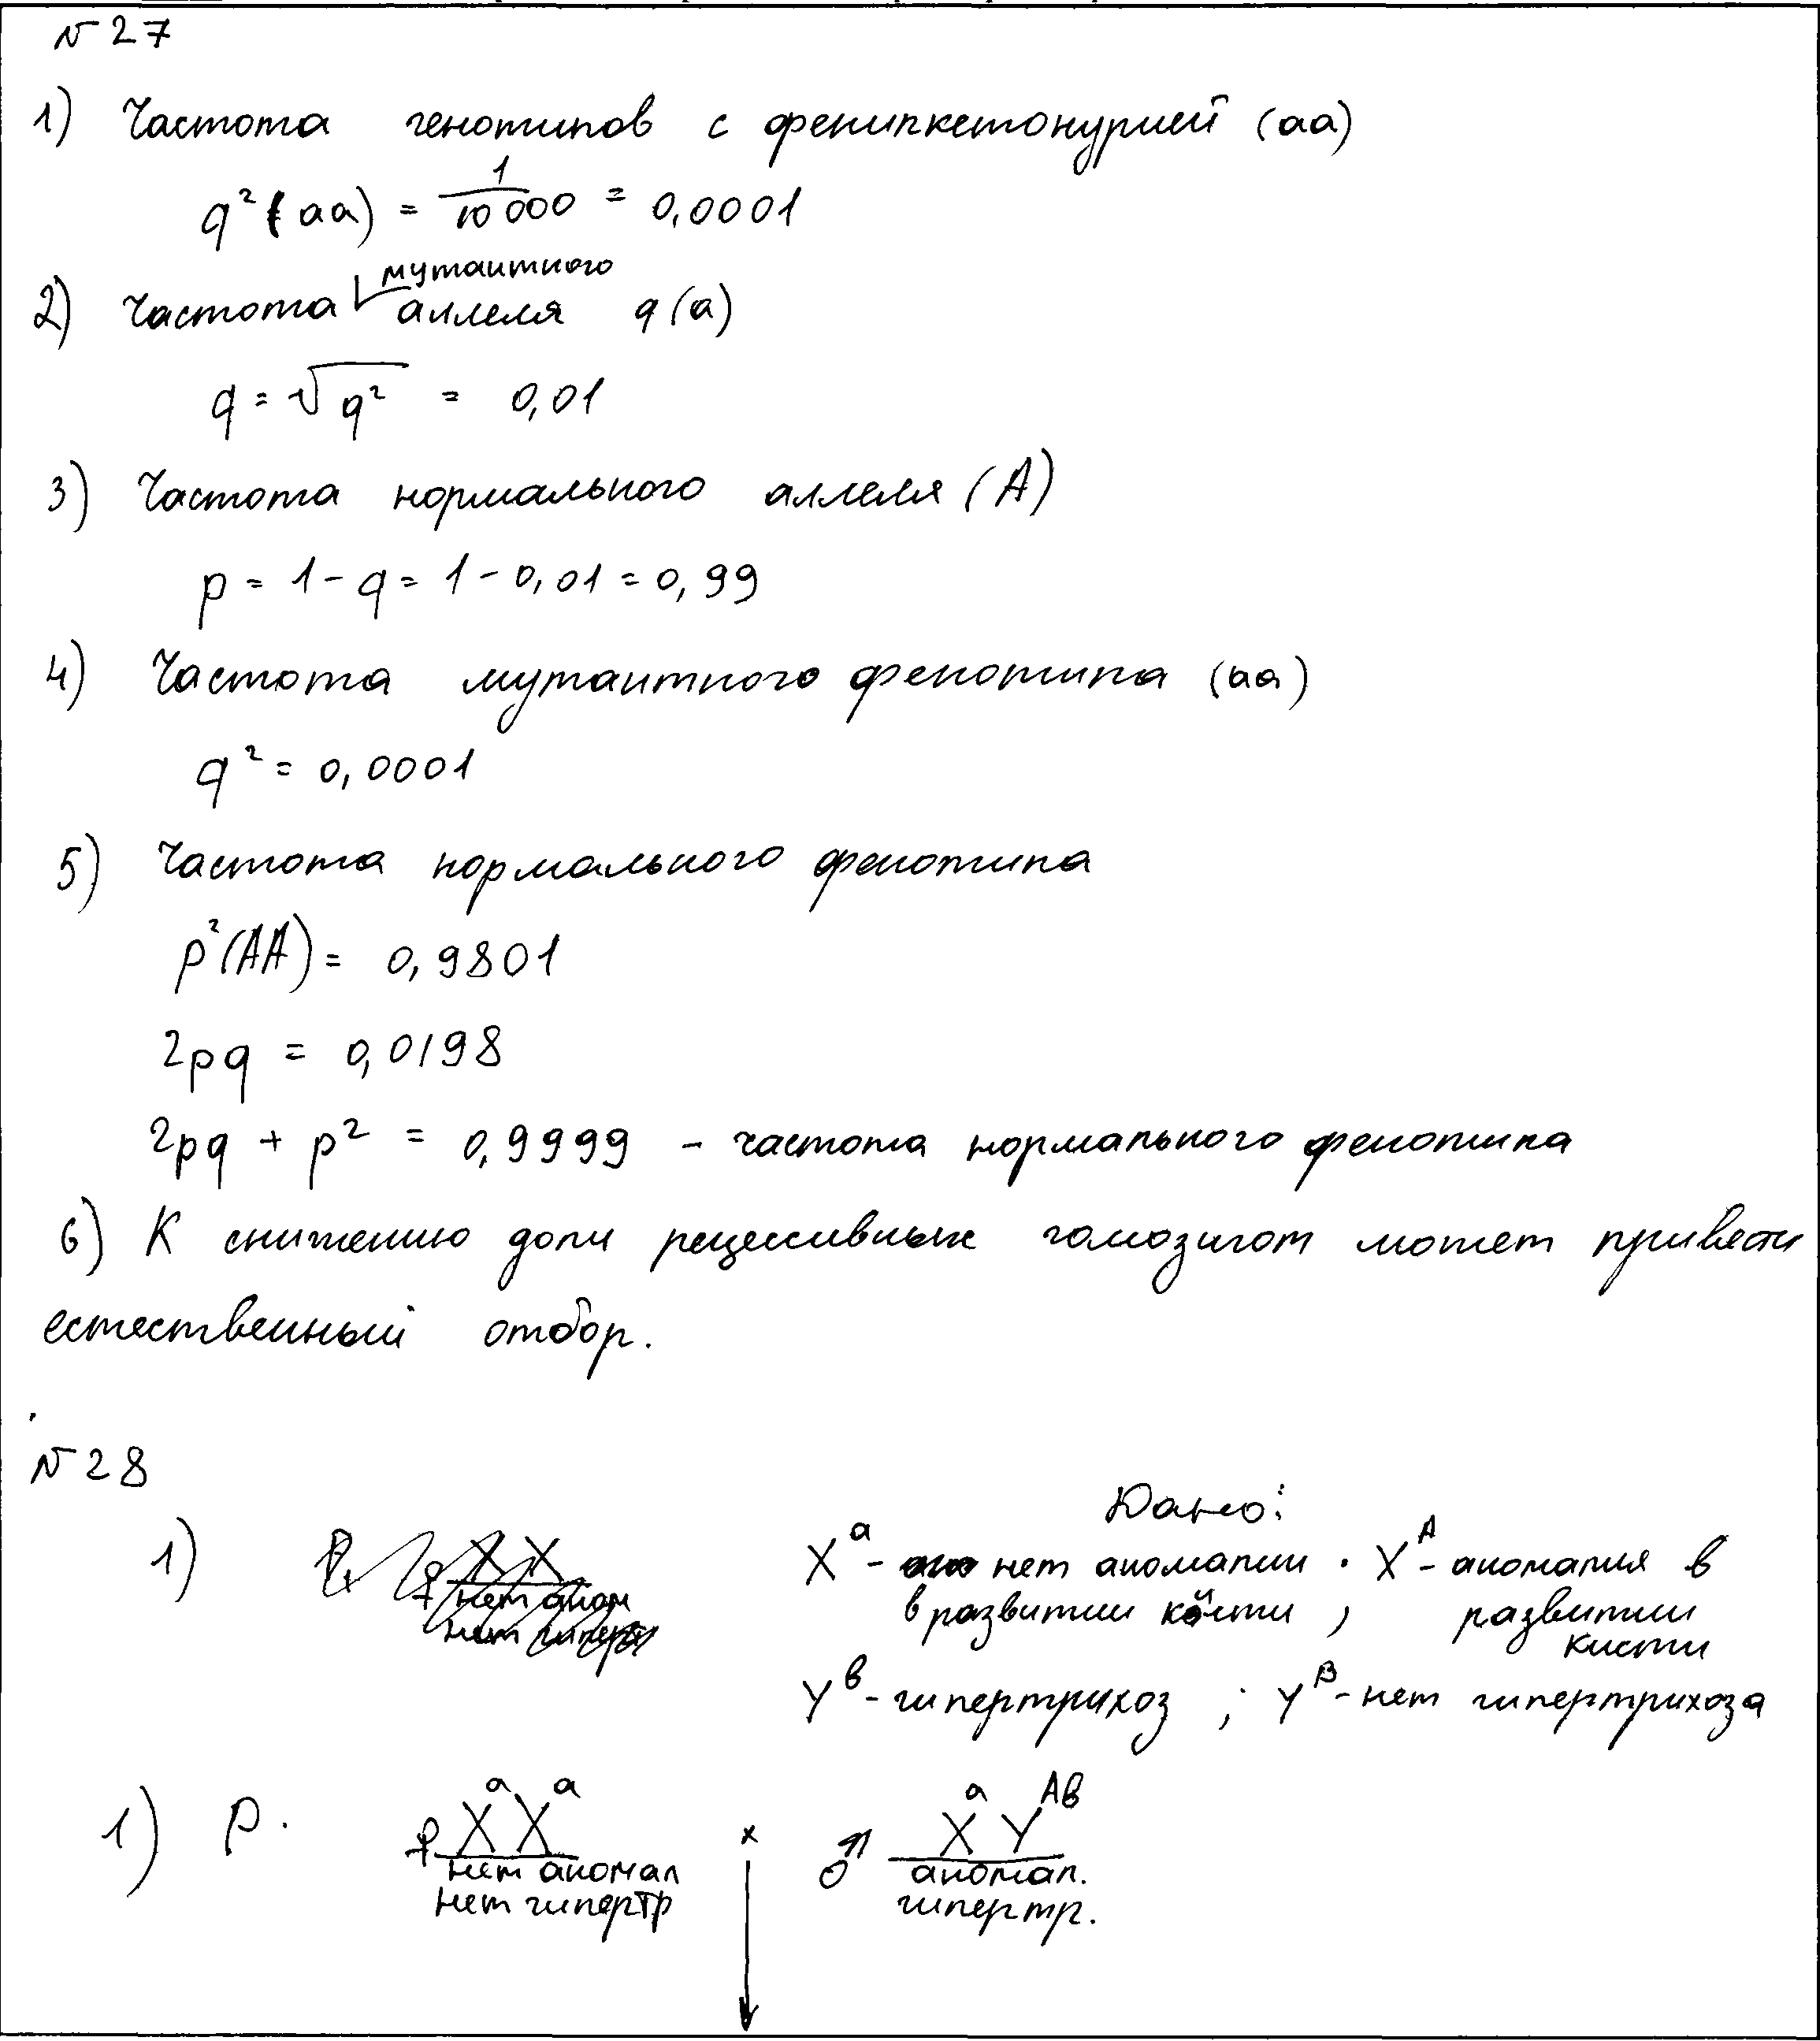 № 27
1) Частота генотипов с фенилкетонурией (aa)
q² (aa) = 1/10 000 = 0,0001
2) Частота мутантного аллеля q (a)
q = √q² = 0,01
3) Частота нормального аллеля (A)
p = 1 - q = 1 - 0,01 = 0,99
4) Частота мутантного фенотипа (aa)
q² = 0,0001
5) Частота нормального фенотипа
p² (AA) = 0,9801
2pq = 0,0198
2pq + p² = 0,9999 - частота нормального фенотипа
6) К снижению доли рецессивных гомозигот может привести
естественный отбор.
№ 28
Дано:
1) X^a - нет аномалии . X^A - аномалия в
в развитии кисти ; развитии
кисти
Y^b - гипертрихоз ; Y^B - нет гипертрихоза
1) P. ♀ X^a X^a x ♂ X^a Y^Ab
нет аномал аномал.
нет гипертр гипертр.